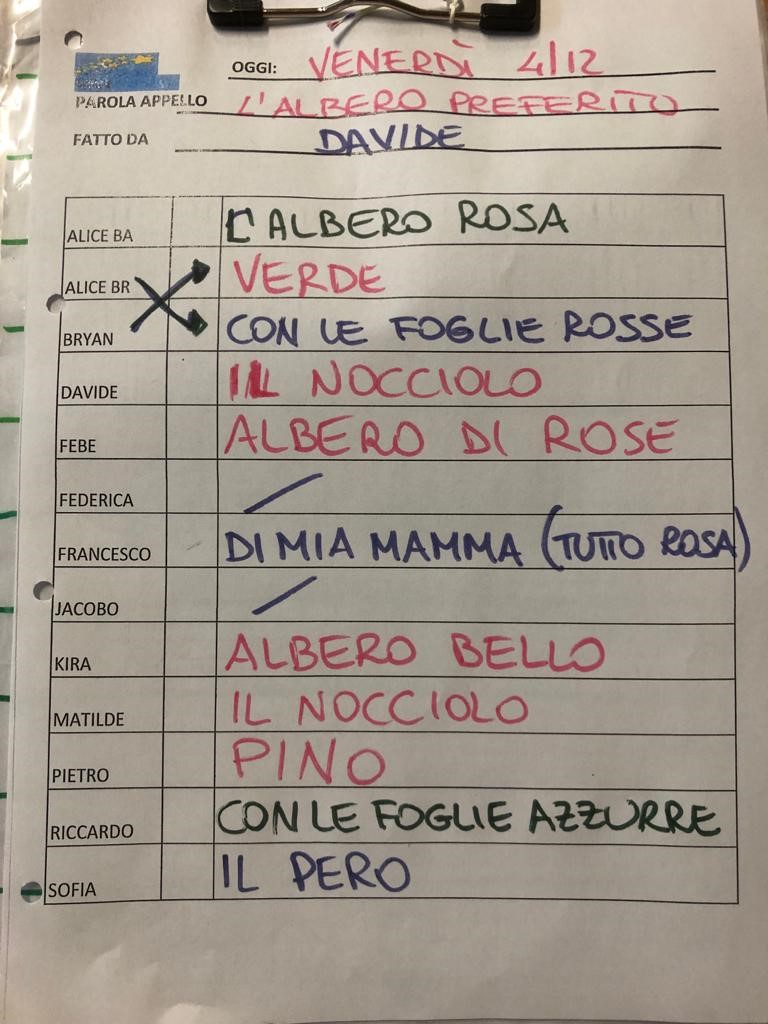 OGGI: VENERDÌ 4/12
PAROLA APPELLO L'ALBERO PREFERITO
FATTO DA DAVIDE
ALICE BA L'ALBERO ROSA
ALICE BR VERDE
BRYAN CON LE FOGLIE ROSSE
DAVIDE IL NOCCIOLO
FEBE ALBERO DI ROSE
FEDERICA /
FRANCESCO DI MIA MAMMA (TUTTO ROSA)
JACOBO /
KIRA ALBERO BELLO
MATILDE IL NOCCIOLO
PIETRO PINO
RICCARDO CON LE FOGLIE AZZURRE
SOFIA IL PERO